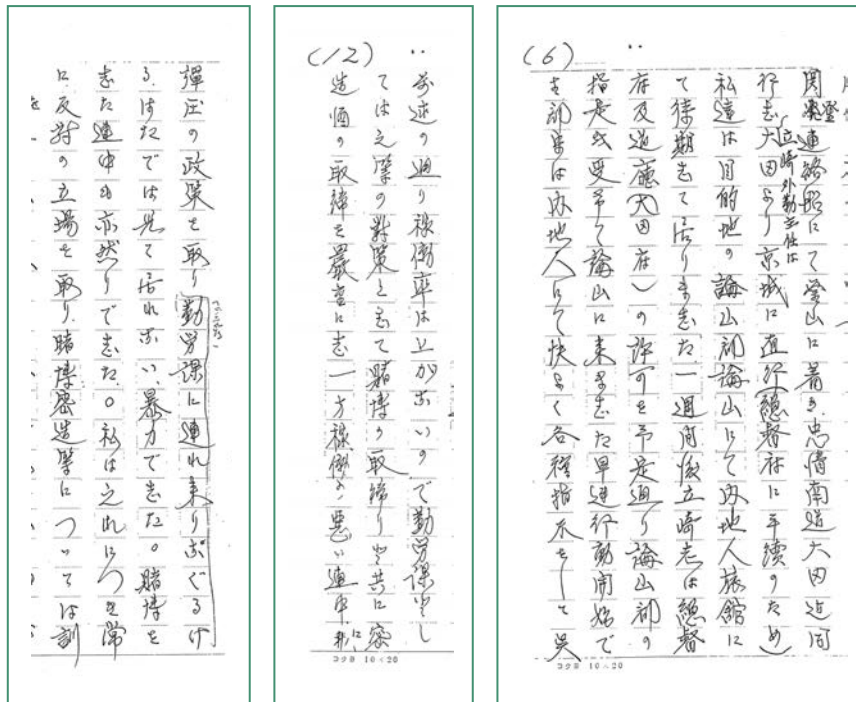 (6)
関釜連絡船にて釜山に着き忠清南道大田迄同
立崎外勤主任は
行志大田より京城に直行(總督府に手續のため)
私達は目的地の論山郡論山にて内地人旅館に
て待期志て居りま志た一週間後立崎志は總督
府及道廳(大田府)の許可を予定通り論山郡の
指定を受けて論山に来ま志た早速行動開始で
す郡守は内地人にて快よく各種指示をして呉
コクヨ 10×20
(12)
前述の通り稼働率は上がないので勤労課とし
ては之等の対策と志て賭博の取締りと共に密
造酒の取締を厳重に志一方稼働の悪い連中に
コクヨ 10×20
彈圧の政策を取り勤労課に連れ来りなぐるけ
る、はたでは見て居れない、暴力で志た。賭博を
志た連中も亦然りで志た。私は之れにつき常
に反対の立場を取り、賭博密造等については訓